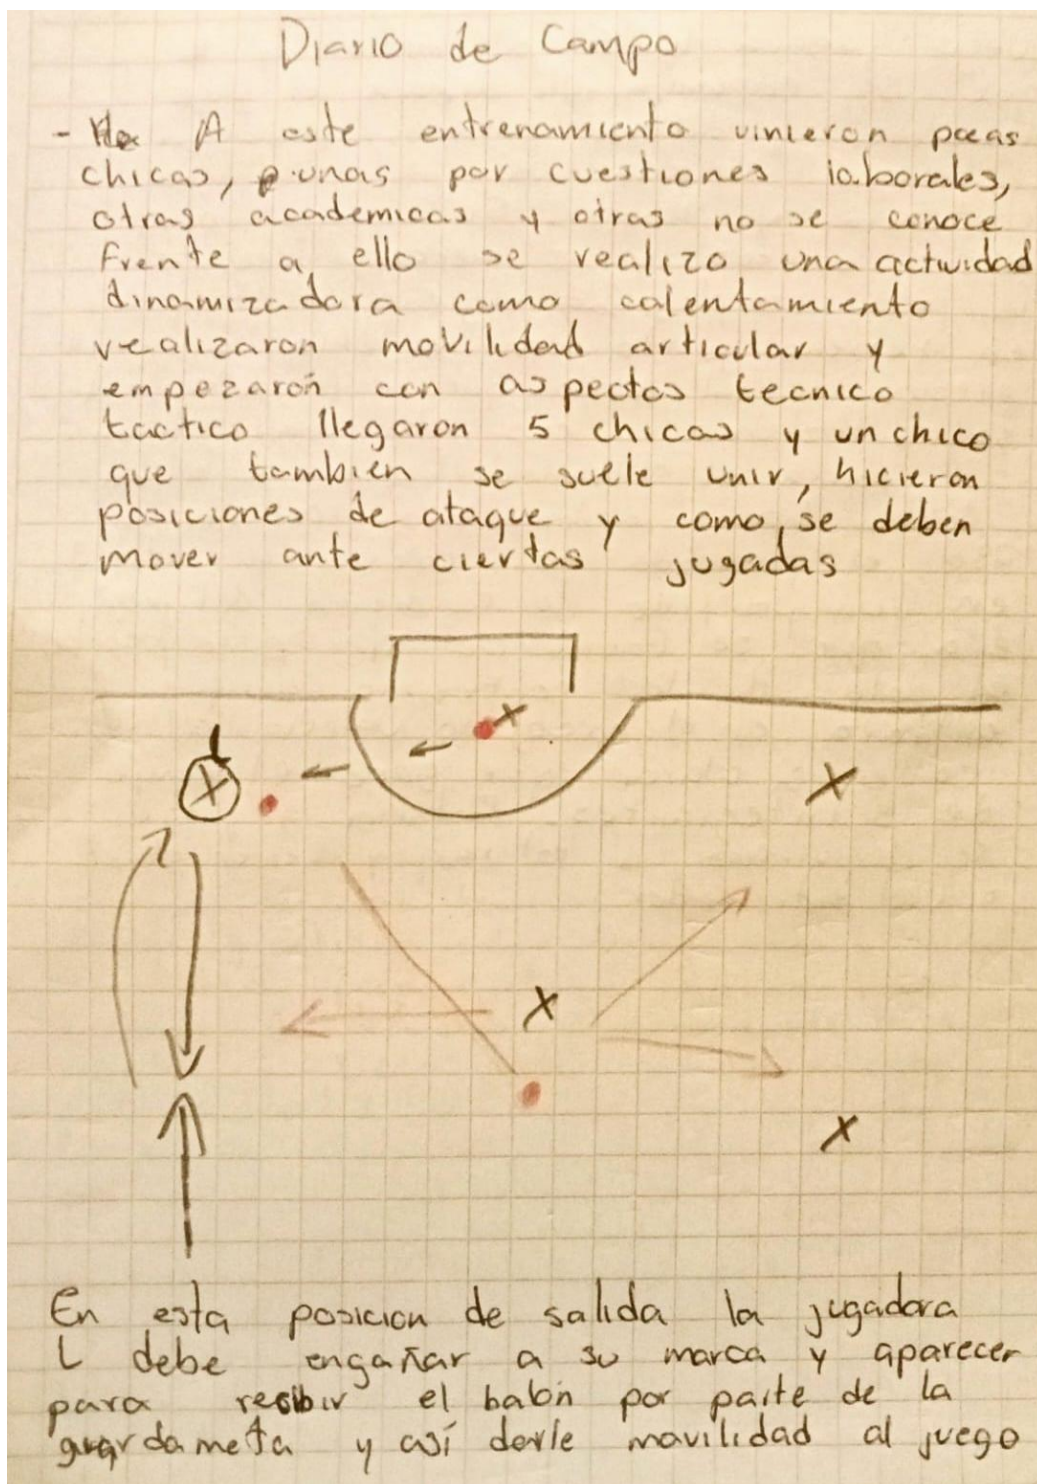 Diario de Campo
- A este entrenamiento vinieron pocas
chicas, unas por cuestiones laborales,
otras academicas y otras no se conoce
frente a ello se realizo una actividad
dinamizadora como calentamiento
realizaron movilidad articular y
empezarón con aspectos tecnico
tactico llegaron 5 chicas y un chico
que tambien se suele unir, hicieron
posiciones de ataque y como se deben
mover ante ciertas jugadas
L
X
X
X
X
X
En esta posicion de salida la jugadora
L debe engañar a su marca y aparecer
para recibir el balón por parte de la
guardameta y así darle movilidad al juego